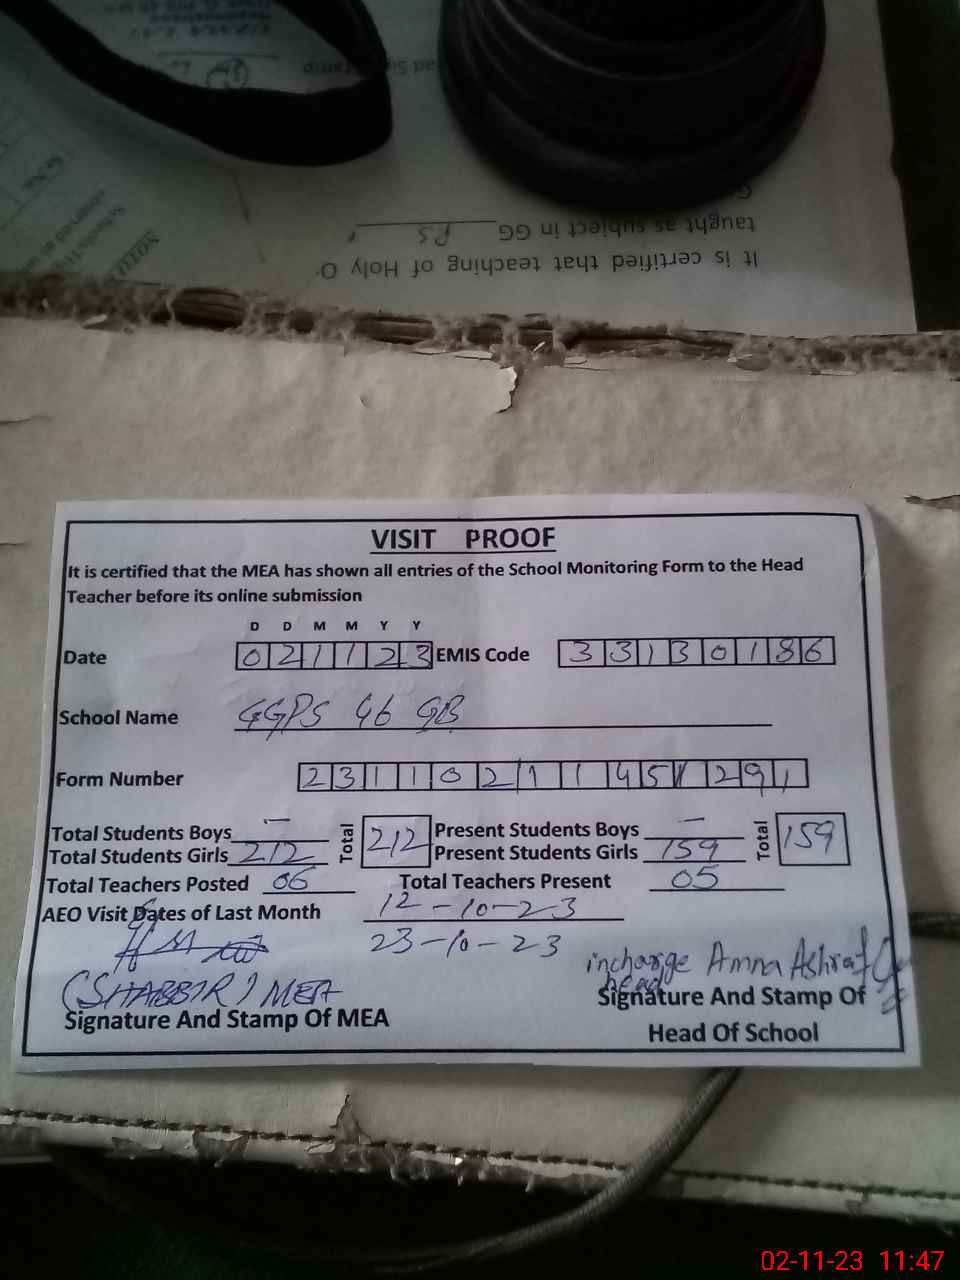 It is certified that teaching of Holy
taught as subject in GG PS
VISIT PROOF
It is certified that the MEA has shown all entries of the School Monitoring Form to the Head
Teacher before its online submission
D D M M Y Y
Date 021123 EMIS Code 33130186
School Name GGPS 46 GB
Form Number
Total Students Boys — Total 212 Present Students Boys — Total 159
Total Students Girls 212 Present Students Girls 159
Total Teachers Posted 06 Total Teachers Present 05
AEO Visit Dates of Last Month 12-10-23
23-10-23
incharge Amna Ashraf
head
(SHABBIR) MEA
Signature And Stamp Of MEA
Signature And Stamp Of
Head Of School
02-11-23 11:47